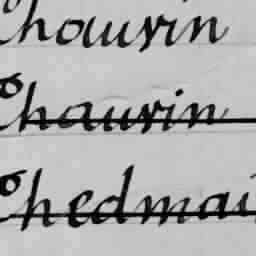 Chauvin
Chauvin
Chedmail